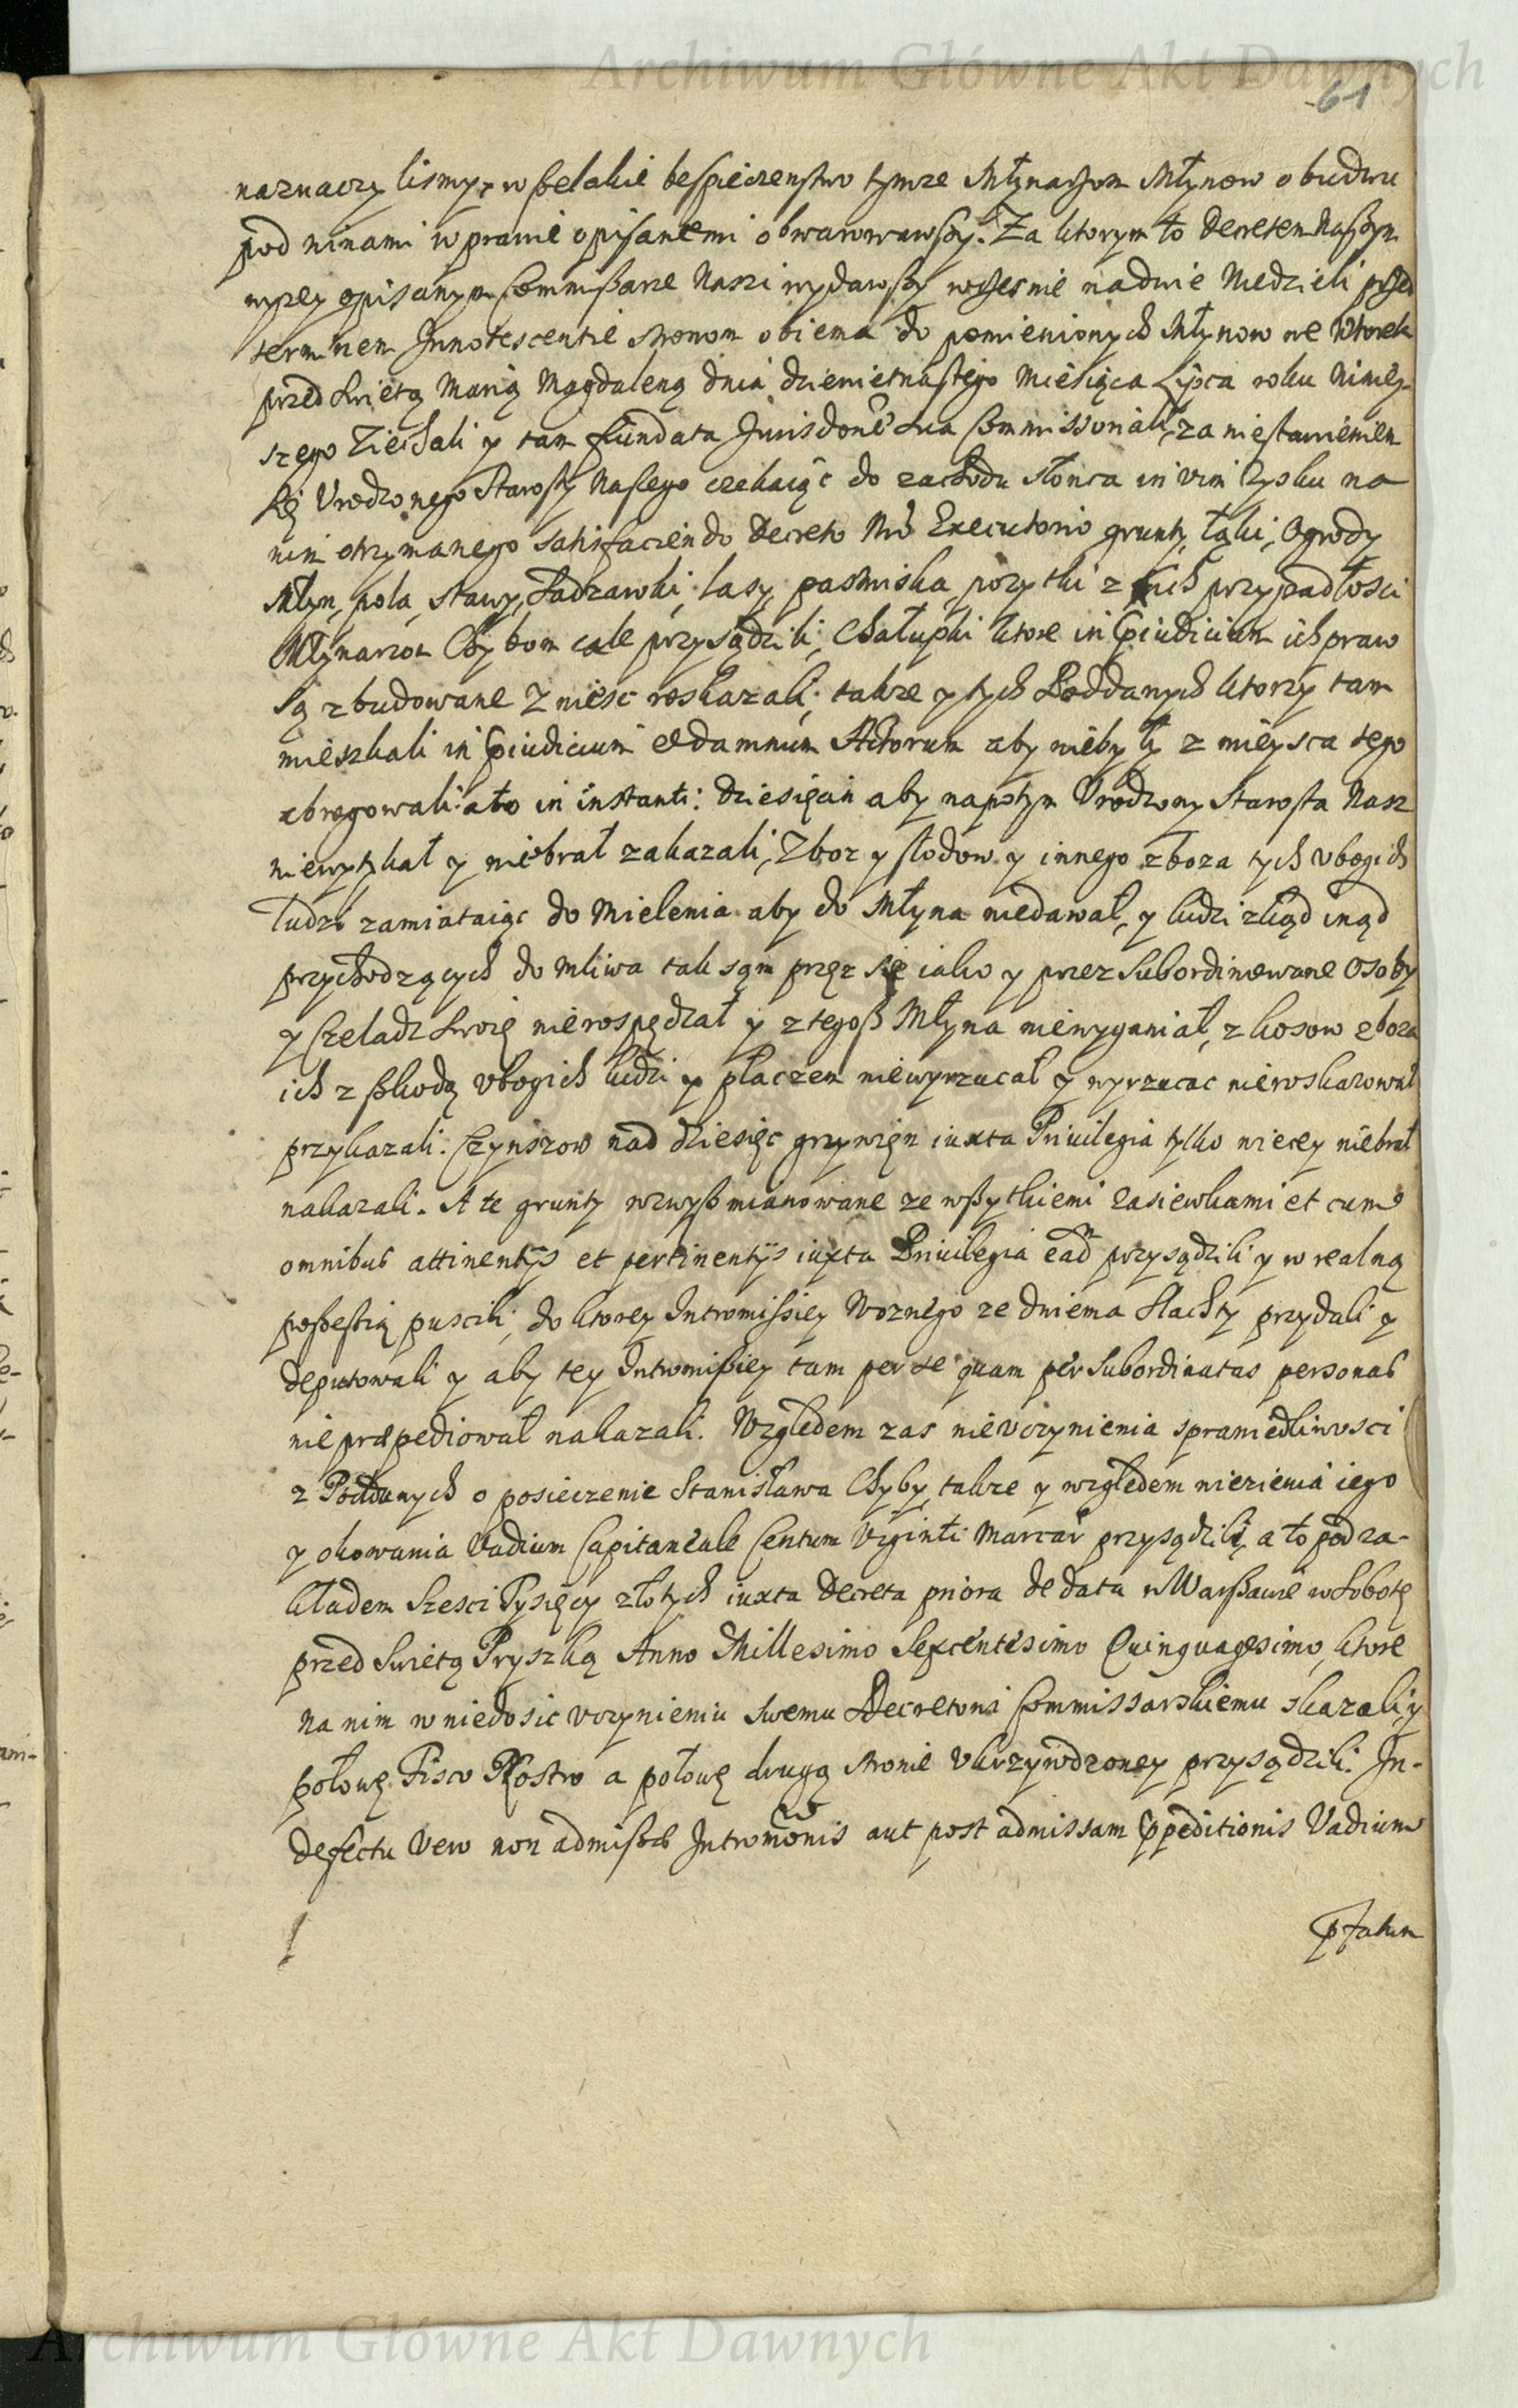 Archiwum Główne Akt Dawnych
61
naznaczylismy, wszelakie bespieczenstwo tymze Młynarzom Młynow obudwu
pod winami w prawie opisanemi obwarowawszy. Za ktorym to Decretem Naszym
wyzey opisanym Commissarze Naszi wydawszy wczesnie na dwie Niedzieli przed
terminem Innotescentie stronom obiema do pomienionych Młynow we Wtorek
przed Swiętą Marią Magdaleną dnia dziewietnastego Miesiąca Lipca roku Niniey-
szego Ziechali y tam fundata Jurisdone sua Commissoriali, za niestawieniem
Się Vrodzonego Starosty Naszego czekaiąc do zachodu słonca in vim Zysku na
nim otrzymanego satisfaciendo Decreto Nro Executorio grunty, Łąki, Ogrody
Młyn, pola, stawy, Sadzawki, lasy, pastwiska, pozytki z nich przypadłosci
Młynarzom Chybom cale przysądzili, Chałupki ktore in Ppiudicium ich praw
Są zbudowane Zniesc roskazali; takze y tych Poddanych ktorzy tam
mieszkali in Ppiudicium et damnum Actorum aby nie byli z mieysca tego
abrogowali: a to in instanti: dziesięcin aby napotym Vrodzony Starosta Nasz
niewytykał y niebrał zakazali, Zboz y słodow y innego zboza tych vbogich
ludzi zamiataiąc do Mielenia aby do Młyna niedawał, y ludzi zkąd inąd
przychodzących do Mliwa tak sąm przęz się iako y przez Subordinowane Osoby
y Czeladz Swoię nierospędzał y z tegosz Młyna niewyganiał, z kosow zboza
ich z szkodą vbogich ludzi y płaczem niewyrzucał y wyrzucac nieroskazował
przykazali. Czynszow nad dziesięc grzywięn iuxta Priuilegia tylko wiecey niebrał
nakazali. A te grunty wzwysz mianowane ze wszytkiemi zasiewkami et cum
omnibus attinentijs et pertinentijs iuxta Priuilegia ead przysądzili y w realną
possessią puscili, do ktorey Intromissiey Woznego ze dwiema Slachty przydali y
deputowali y aby tey Intromissiey tam per se quam per Subordinatas personas
nie præpediował nakazali. Względem zas nievczynienia sprawiedliwosci
z Poddanych o posieczenie Stanisława Chyby, takze y względem wiezienia iego
y okowania Vadium Capitaneale Centum Viginti Marcar przysądzili, a to pod za-
kładem Szesci Tysięcy złotych iuxta Decreta priora de data w Warszawie w Sobotę
przed Swietą Pryszką Anno Millesimo Sexcentesimo Quinquagesimo, ktore
na nim w niedosic vczynieniu swemu Decretowi Commissarskiemu skazali, y
połowę Fisco Nostro a połowę drugą stronie vkrzywdzoney przysądzili. In-
defectu vero non admissæ Intromonis aut post admissam Ppeditionis Vadium
Ppfatum
Archiwum Główne Akt Dawnych